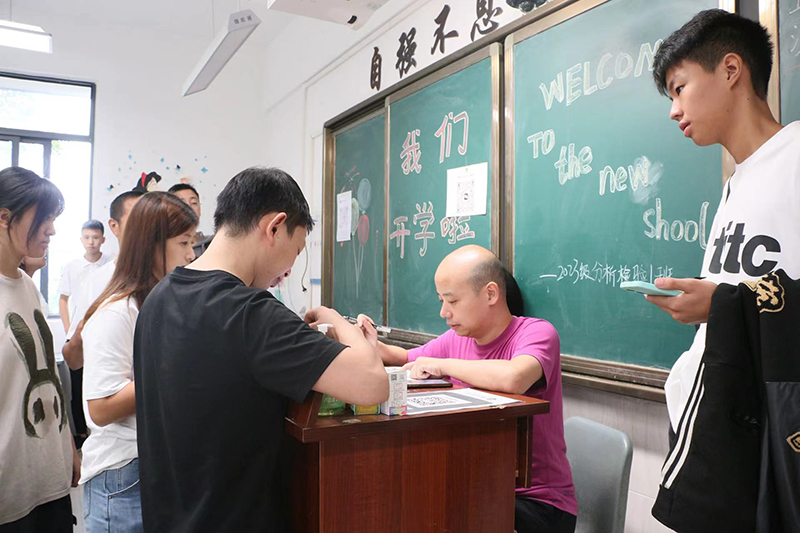 自强不息
我们
开学啦
WELCOM
To the new
shool
2023级分析检验1班
ttc